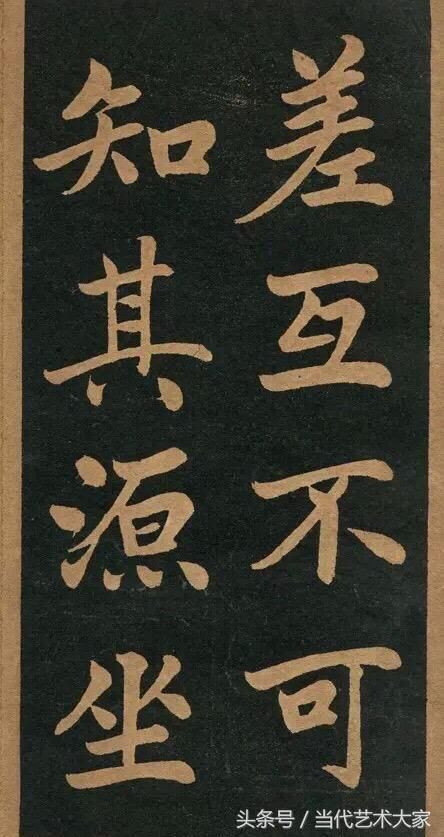 差互不可
知其源坐
头条号／当代艺术大家